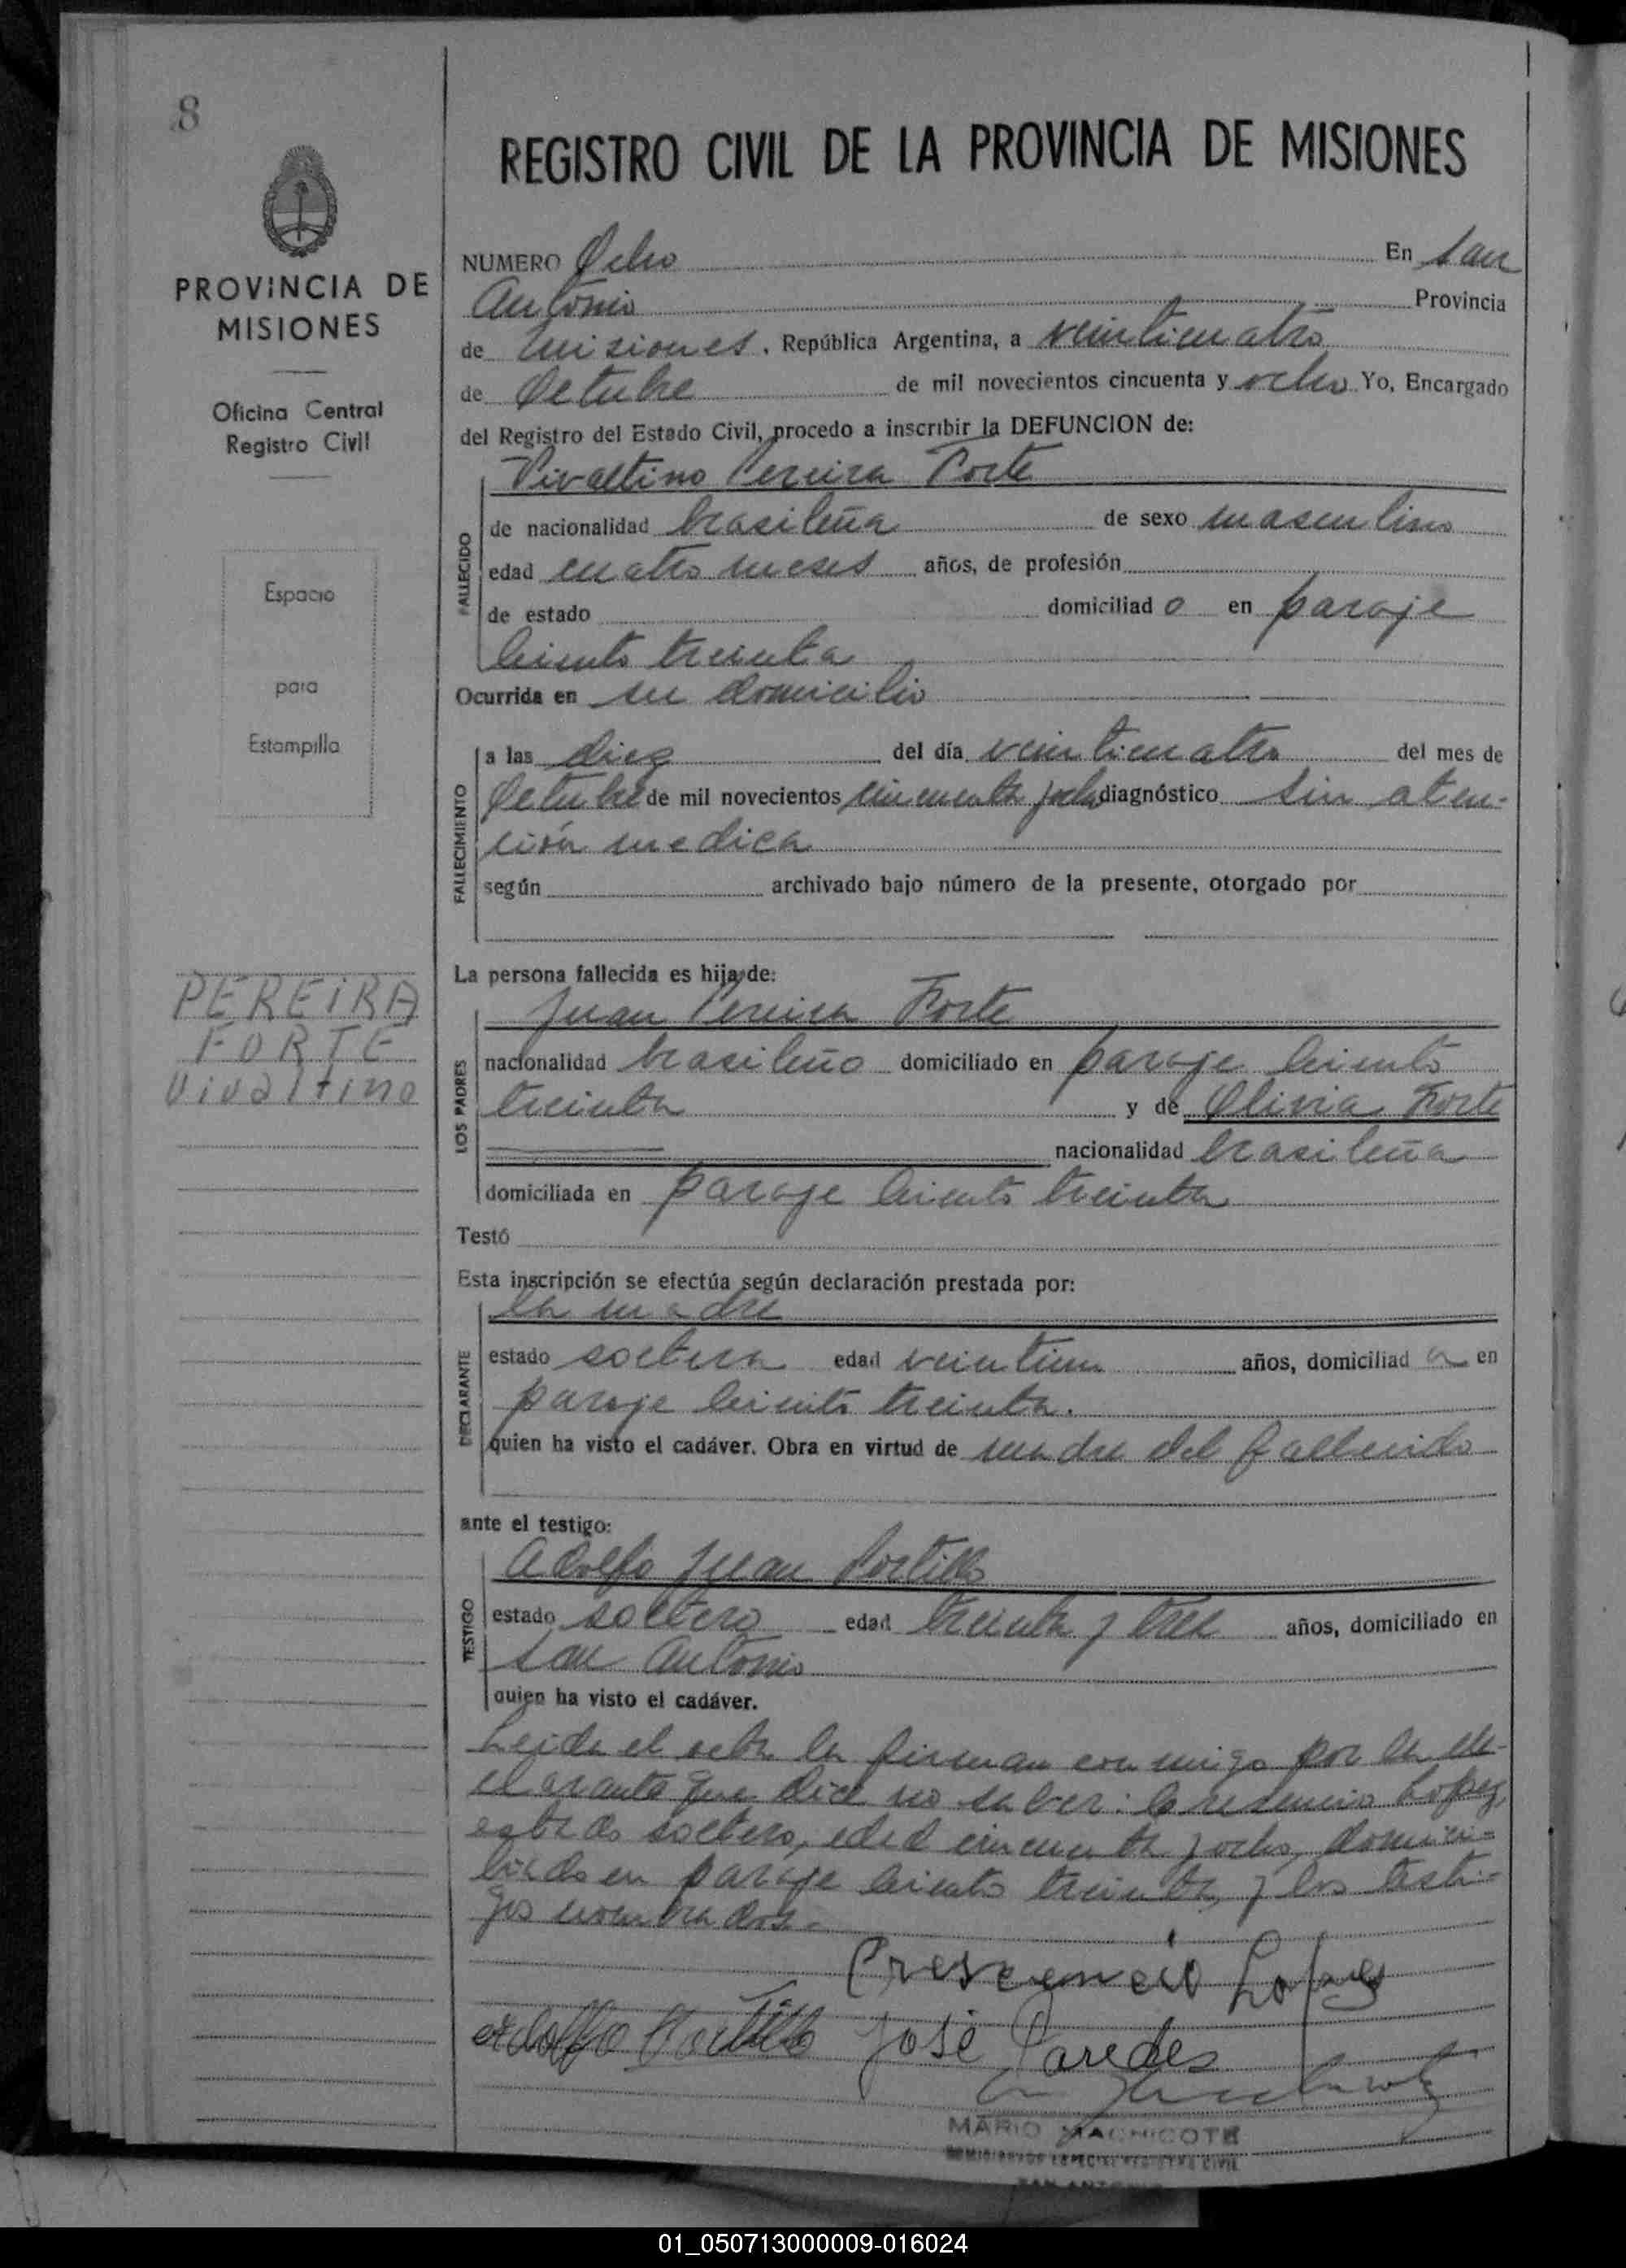 8
PROVINCIA DE
MISIONES
Oficina Central
Registro Civil
Espacio
para
Estampilla
PEREIRA
FORTE
Vivaltino
REGISTRO CIVIL DE LA PROVINCIA DE MISIONES
NUMERO Ocho En San
Antonio Provincia
de Misiones, República Argentina, a veinticuatro
de Octubre de mil novecientos cincuenta y ocho Yo, Encargado
del Registro del Estado Civil, procedo a inscribir la DEFUNCION de:
Vivaltino Pereira Forte
FALLECIDO
de nacionalidad brasileña de sexo masculino
edad cuatro meses años, de profesión
de estado domiciliad o en paraje
ciento treinta
Ocurrida en su domicilio
FALLECIMIENTO
a las diez del día veinticuatro del mes de
Octubre de mil novecientos cincuenta y ocho diagnóstico sin aten-
ción medica
según archivado bajo número de la presente, otorgado por
La persona fallecida es hijo de:
LOS PADRES
Juan Pereira Forte
nacionalidad brasileño domiciliado en paraje ciento
treinta y de Olivia Forte
nacionalidad brasileña
domiciliada en paraje ciento treinta
Testó
Esta inscripción se efectúa según declaración prestada por:
DECLARANTE
la madre
estado soltera edad veintiun años, domiciliad a en
paraje ciento treinta.
quien ha visto el cadáver. Obra en virtud de madre del fallecido
ante el testigo:
TESTIGO
Adolfo Juan Portillo
estado soltero edad treinta y tres años, domiciliado en
San Antonio
quien ha visto el cadáver.
Leida el acta la firman conmigo por la de-
clarante que dice no saber: Cresencio Lopez,
estado soltero, edad cincuenta y ocho, domici-
liado en paraje ciento treinta, y los testi-
gos nombrados.
Crescencio Lopez
Adolfo Portillo José Paredes
MARIO MACHICOTE
ESPECIAL REGISTRO CIVIL
SAN ANTONIO
01_050713000009-016024